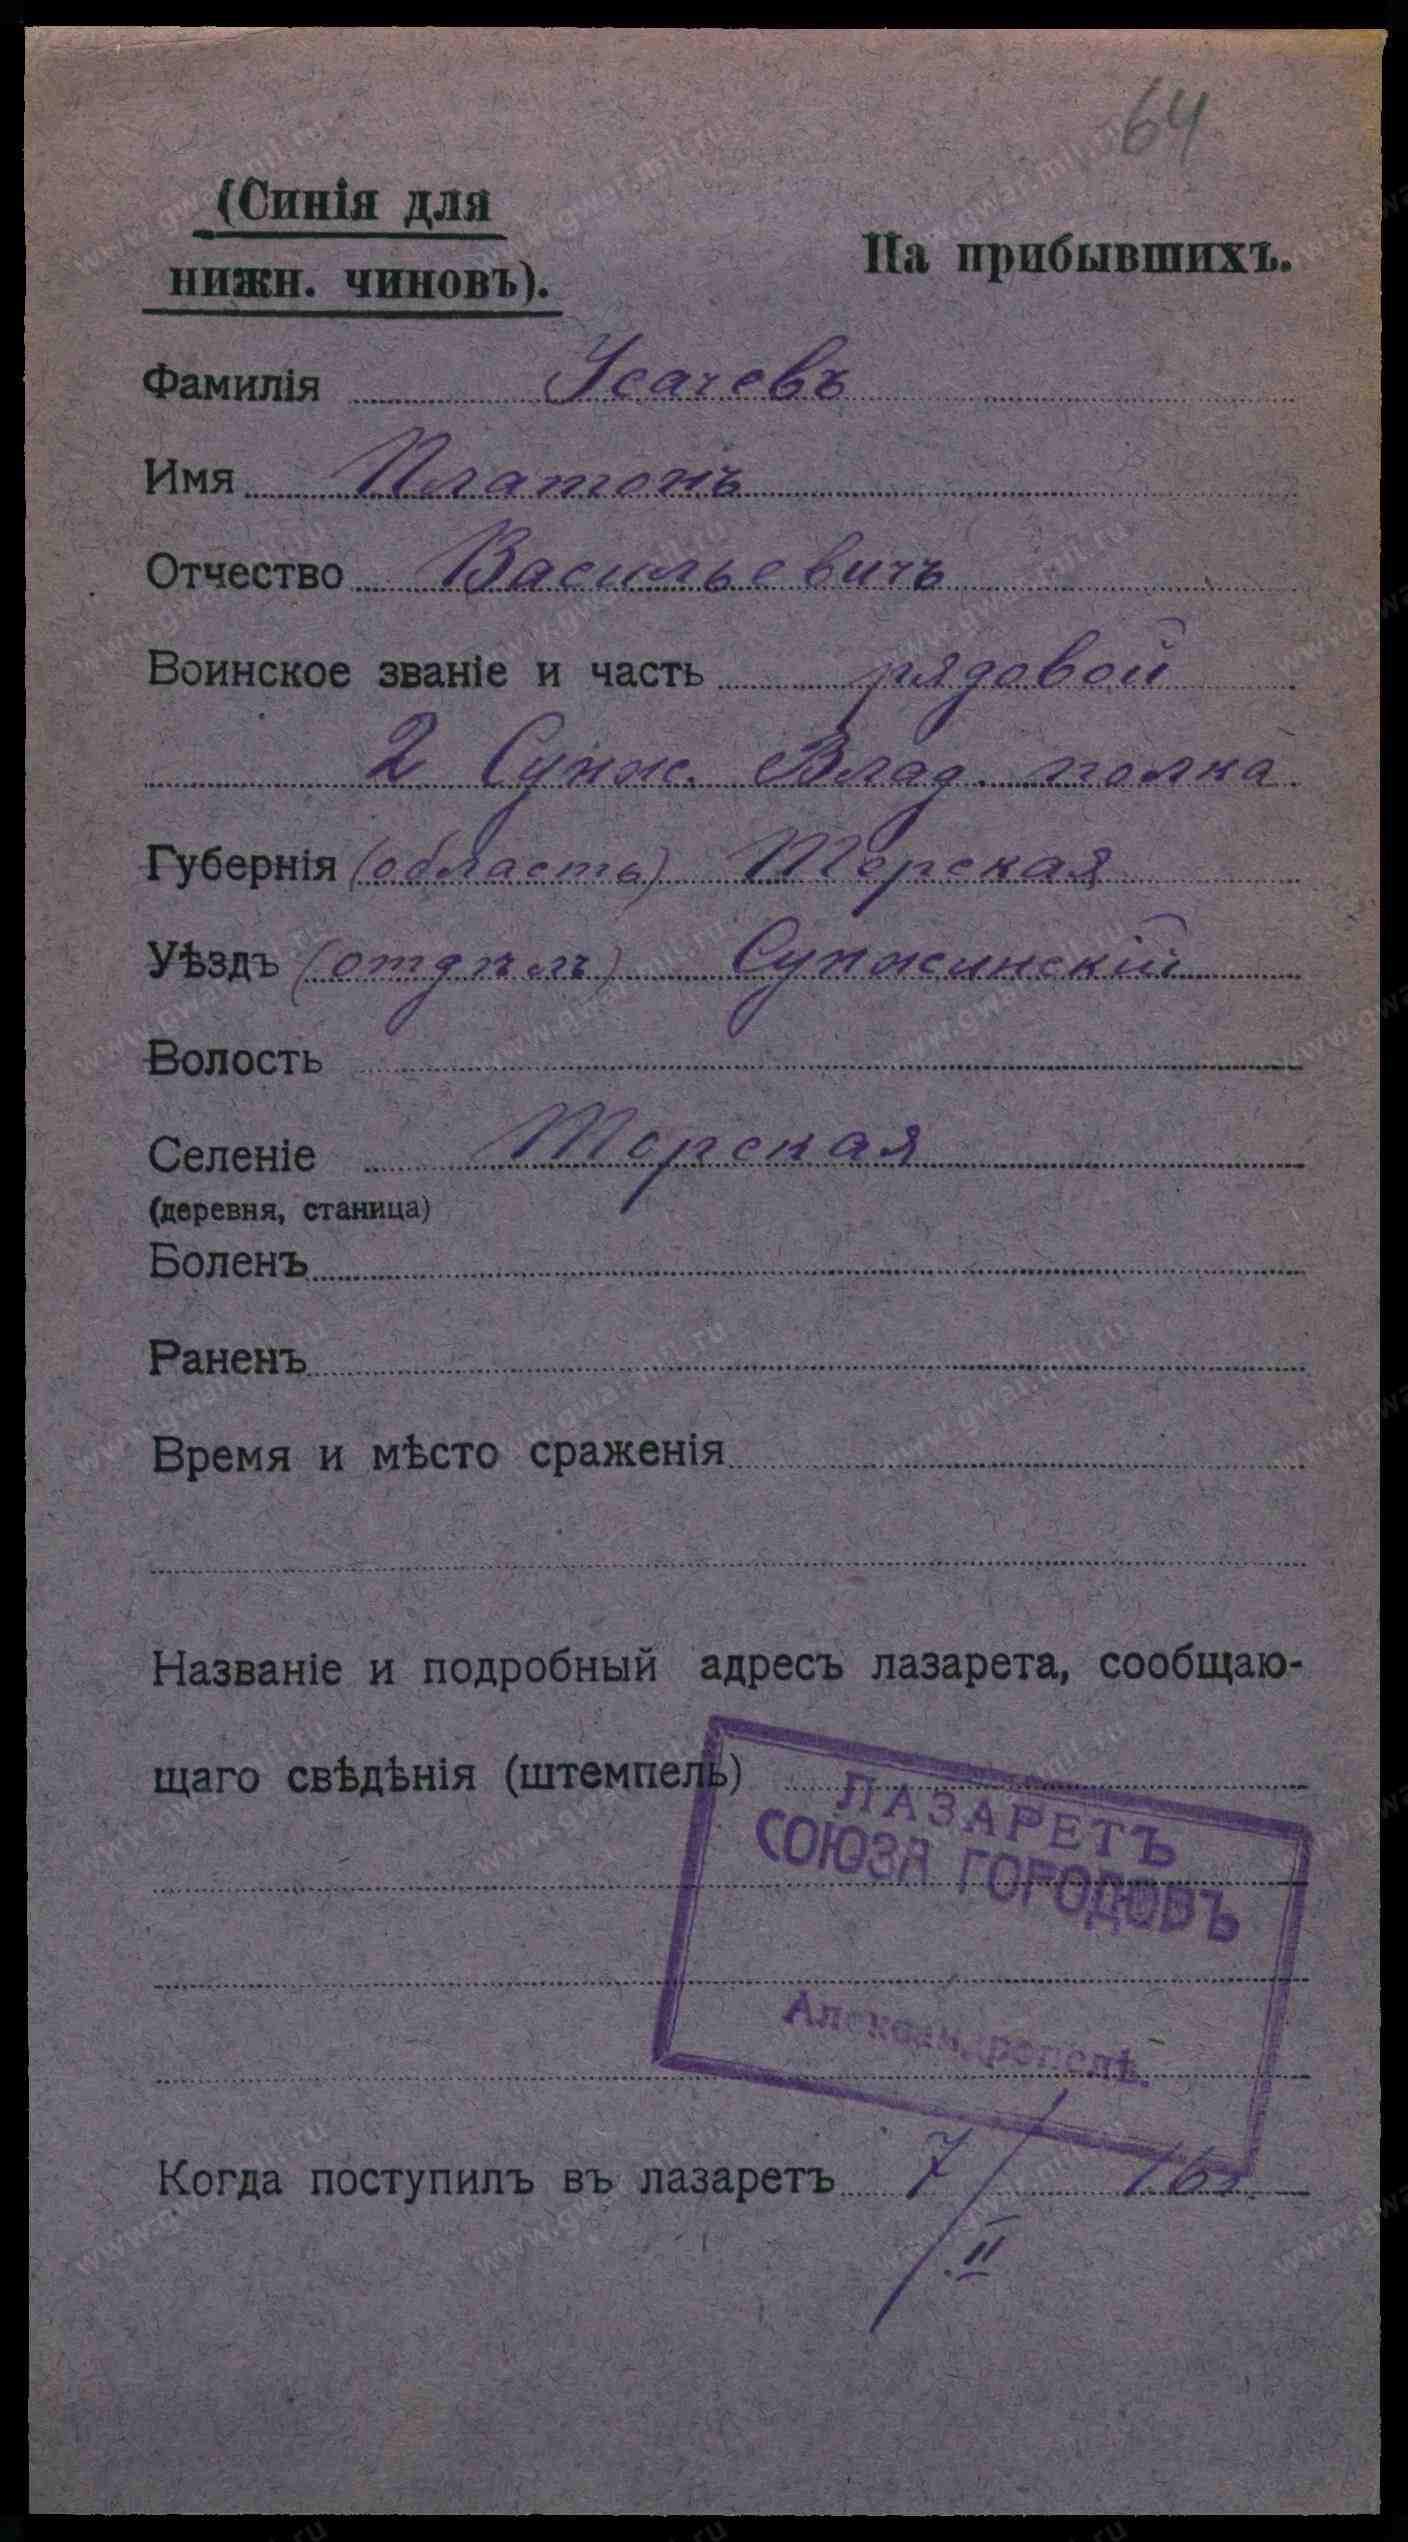 64
(Синія для
нижн. чиновъ).
На прибывшихъ.
Фамилія Усачевъ
Имя Платонъ
Отчество Васильевичъ
Воинское званіе и часть рядовой
2 Сунж. Влад. полка
Губернія (область) Терская
Уѣздъ (отдѣлъ) Сунженскій
Волость
Селеніе Терская
(деревня, станица)
Боленъ
Раненъ
Время и мѣсто сраженія
Названіе и подробный адресъ лазарета, сообщаю-
щаго свѣдѣнія (штемпель)
ЛАЗАРЕТЪ
СОЮЗА ГОРОДОВЪ
Александрополѣ.
Когда поступилъ въ лазаретъ 7/II 16г.
www.gwar.mil.ru